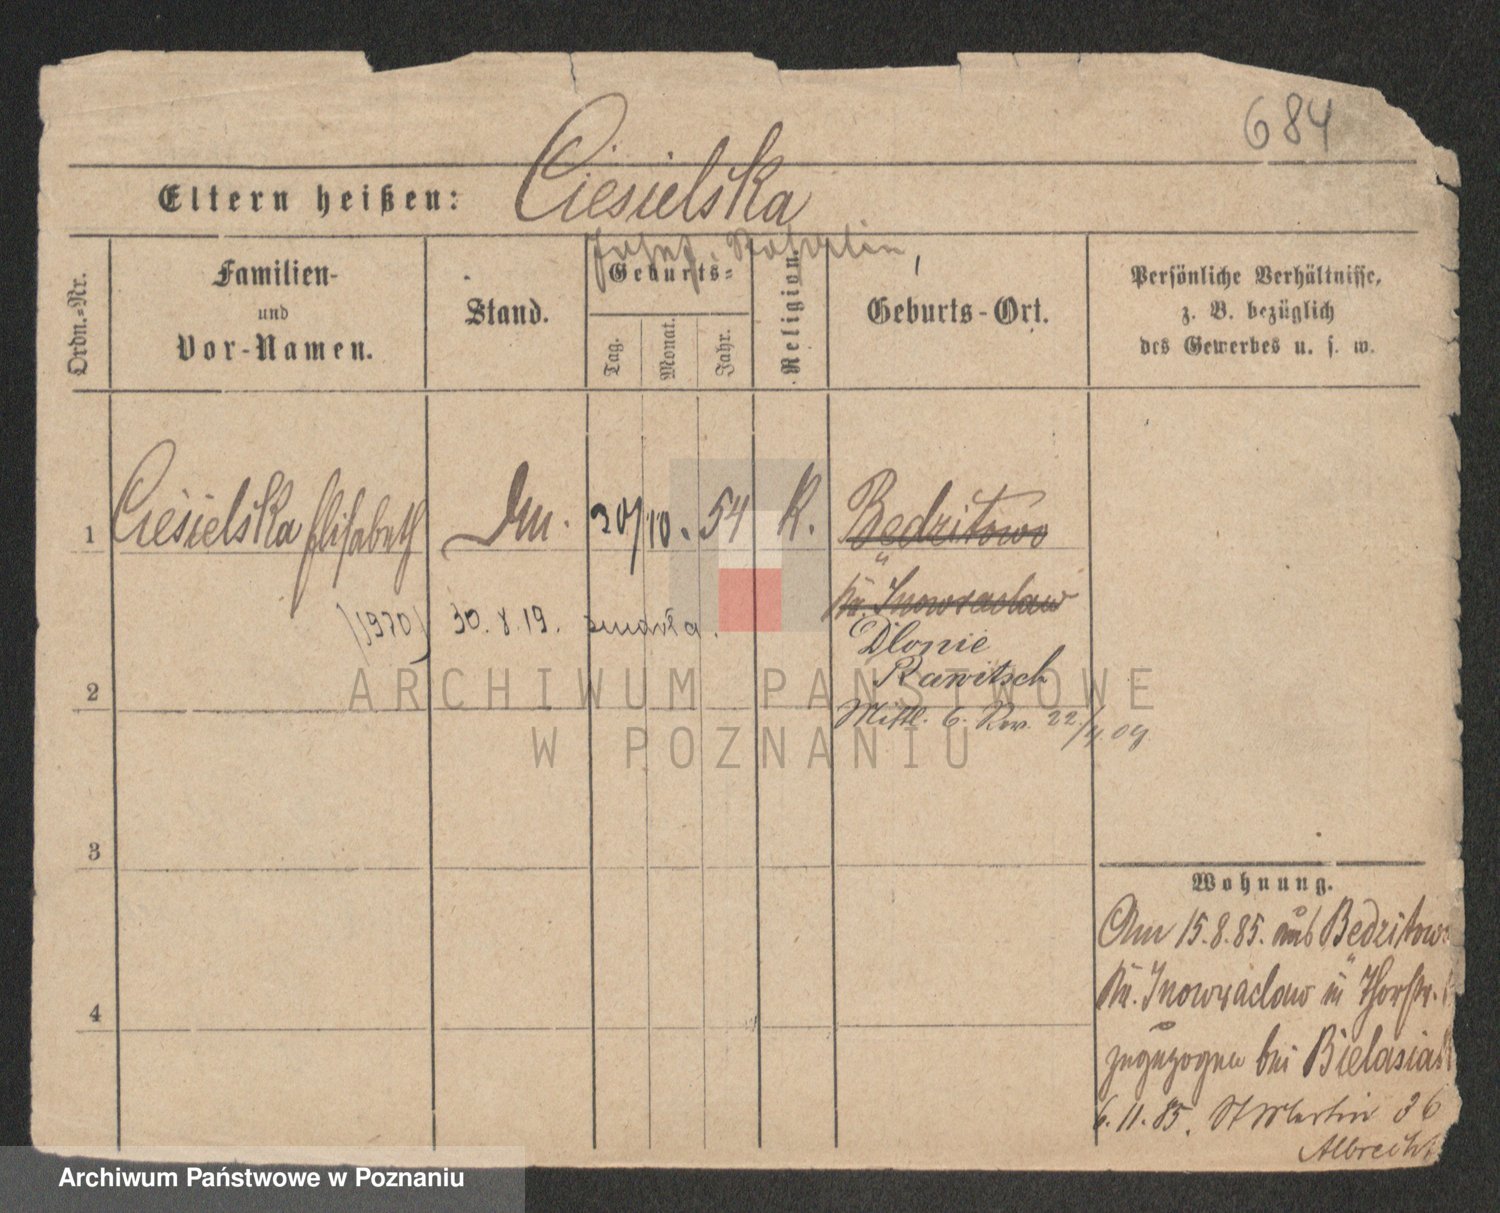 684
Eltern heißen: Ciesielska
Ordn.-Nr.
Familien-
und
Vor-Namen.
Stand.
Geburts-
Tag.
Monat.
Jahr.
Religion.
Geburts-Ort.
Persönliche Verhältnisse,
z. B. bezüglich
des Gewerbes u. s. w.
1 Ciesielska Elisabeth 54 K. Będzitowo
Kr. Inowraclaw
(1920) 30.8.19. zmarła.
Dlonie
Rawitsch
2
Mittl. 6. Rev. 22/4 09
3
4
Wohnung.
Am 15.8.85. aus Bedzitowo
Kr. Inowraclaw in Thorstr.
zugezogen bei
6.11.85. St Martin 36
Albrecht
ARCHIWUM PAŃSTWOWE
W POZNANIU
Archiwum Państwowe w Poznaniu